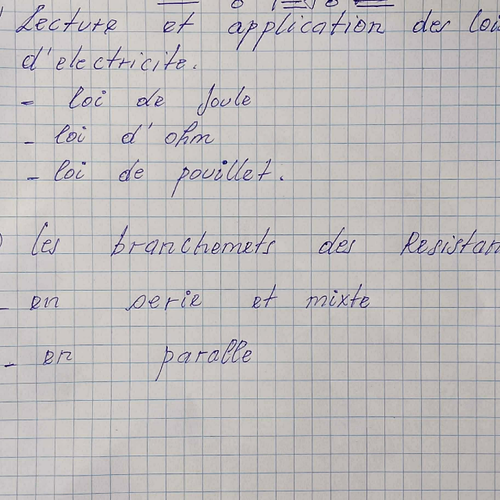 Lecture et application des loi
d'electricite.
- loi de Joule
- loi d'ohm
- loi de pouillet.
les branchemets des Resistan
- en serie et mixte
- en paralle